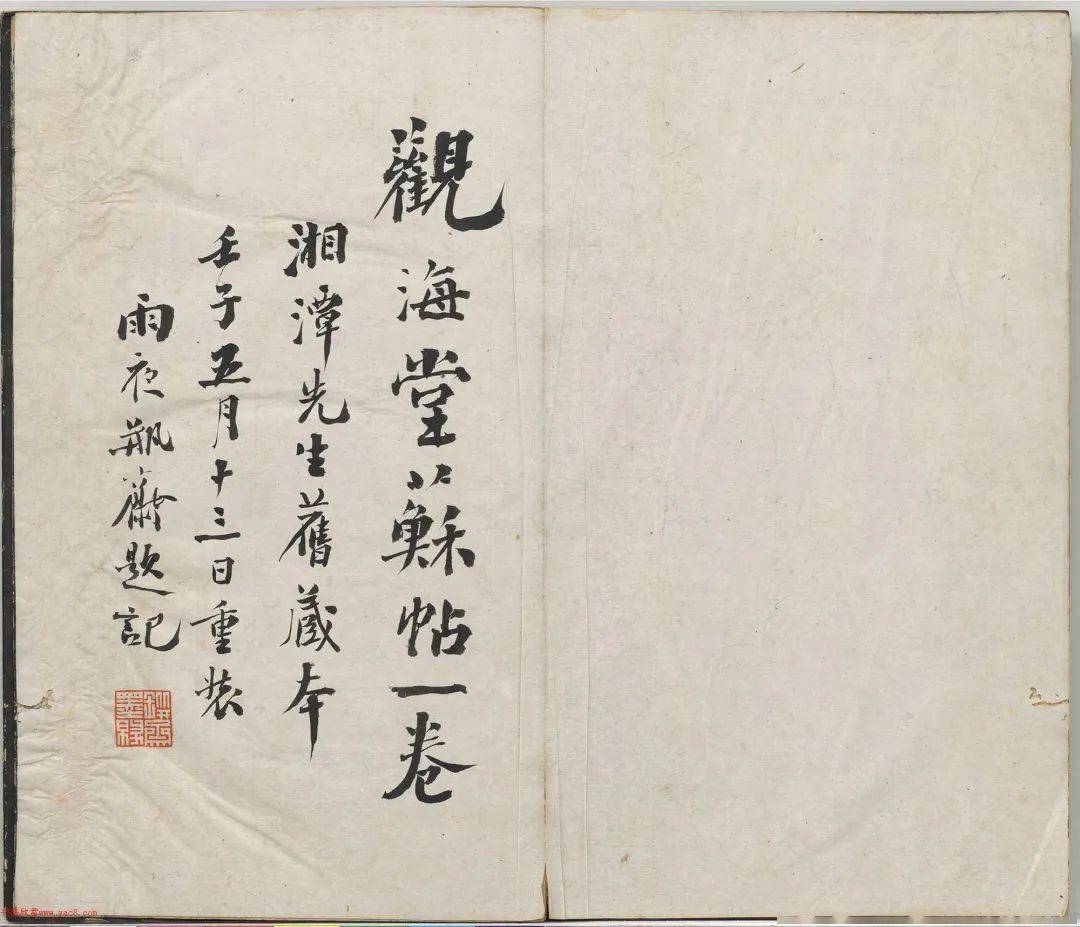 觀海堂蘇帖一卷
湘潭先生舊藏本
壬子五月十三日重裝
雨夜瓶齋題記
www.yac8.com